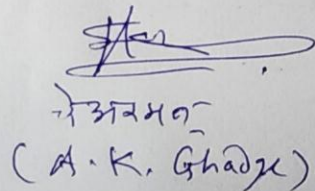 चेअरमन
(A. K. Ghadge)